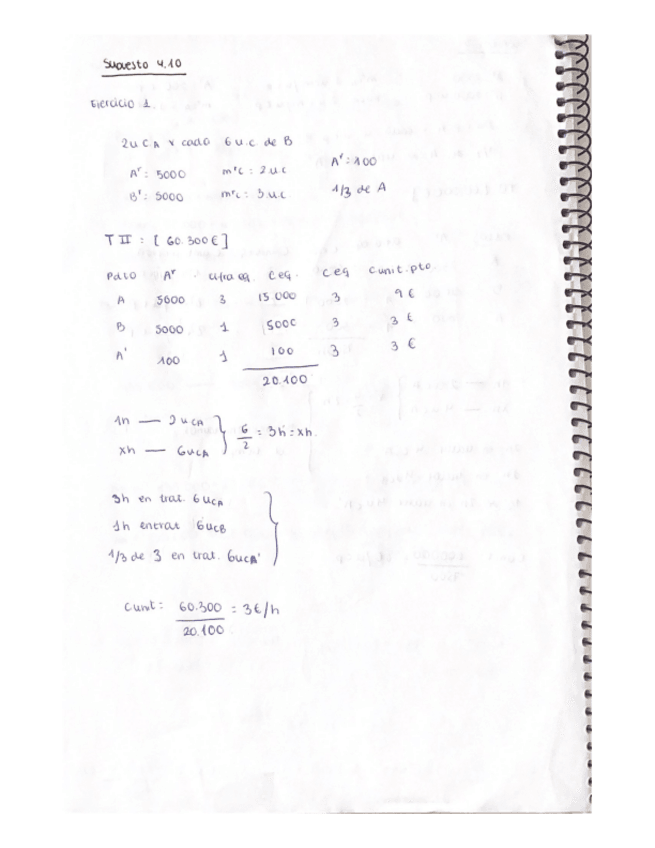 Supuesto 4.10
Ejercicio 1.
2u CA x cada 6 u.c de B
Ar: 5000 m'c: 2 u.c A': 100
B': 5000 m'c: 3 u.c 1/3 de A
T II : [ 60.300€ ]
Pdto Ar cifra eq. C eq. C eq C unit. pto.
A 5000 3 15.000 3 9 €
B 5000 1 5000 3 3 €
A' 100 1 100 3 3 €
20.100
1h — 2 uCA
xh — 6uCA } 6/2 = 3h = xh.
3h en trat. 6 uCA
1h en trat 6uCB
1/3 de 3 en trat. 6uCA'
Cunit: 60.300 / 20.100 = 3€/h